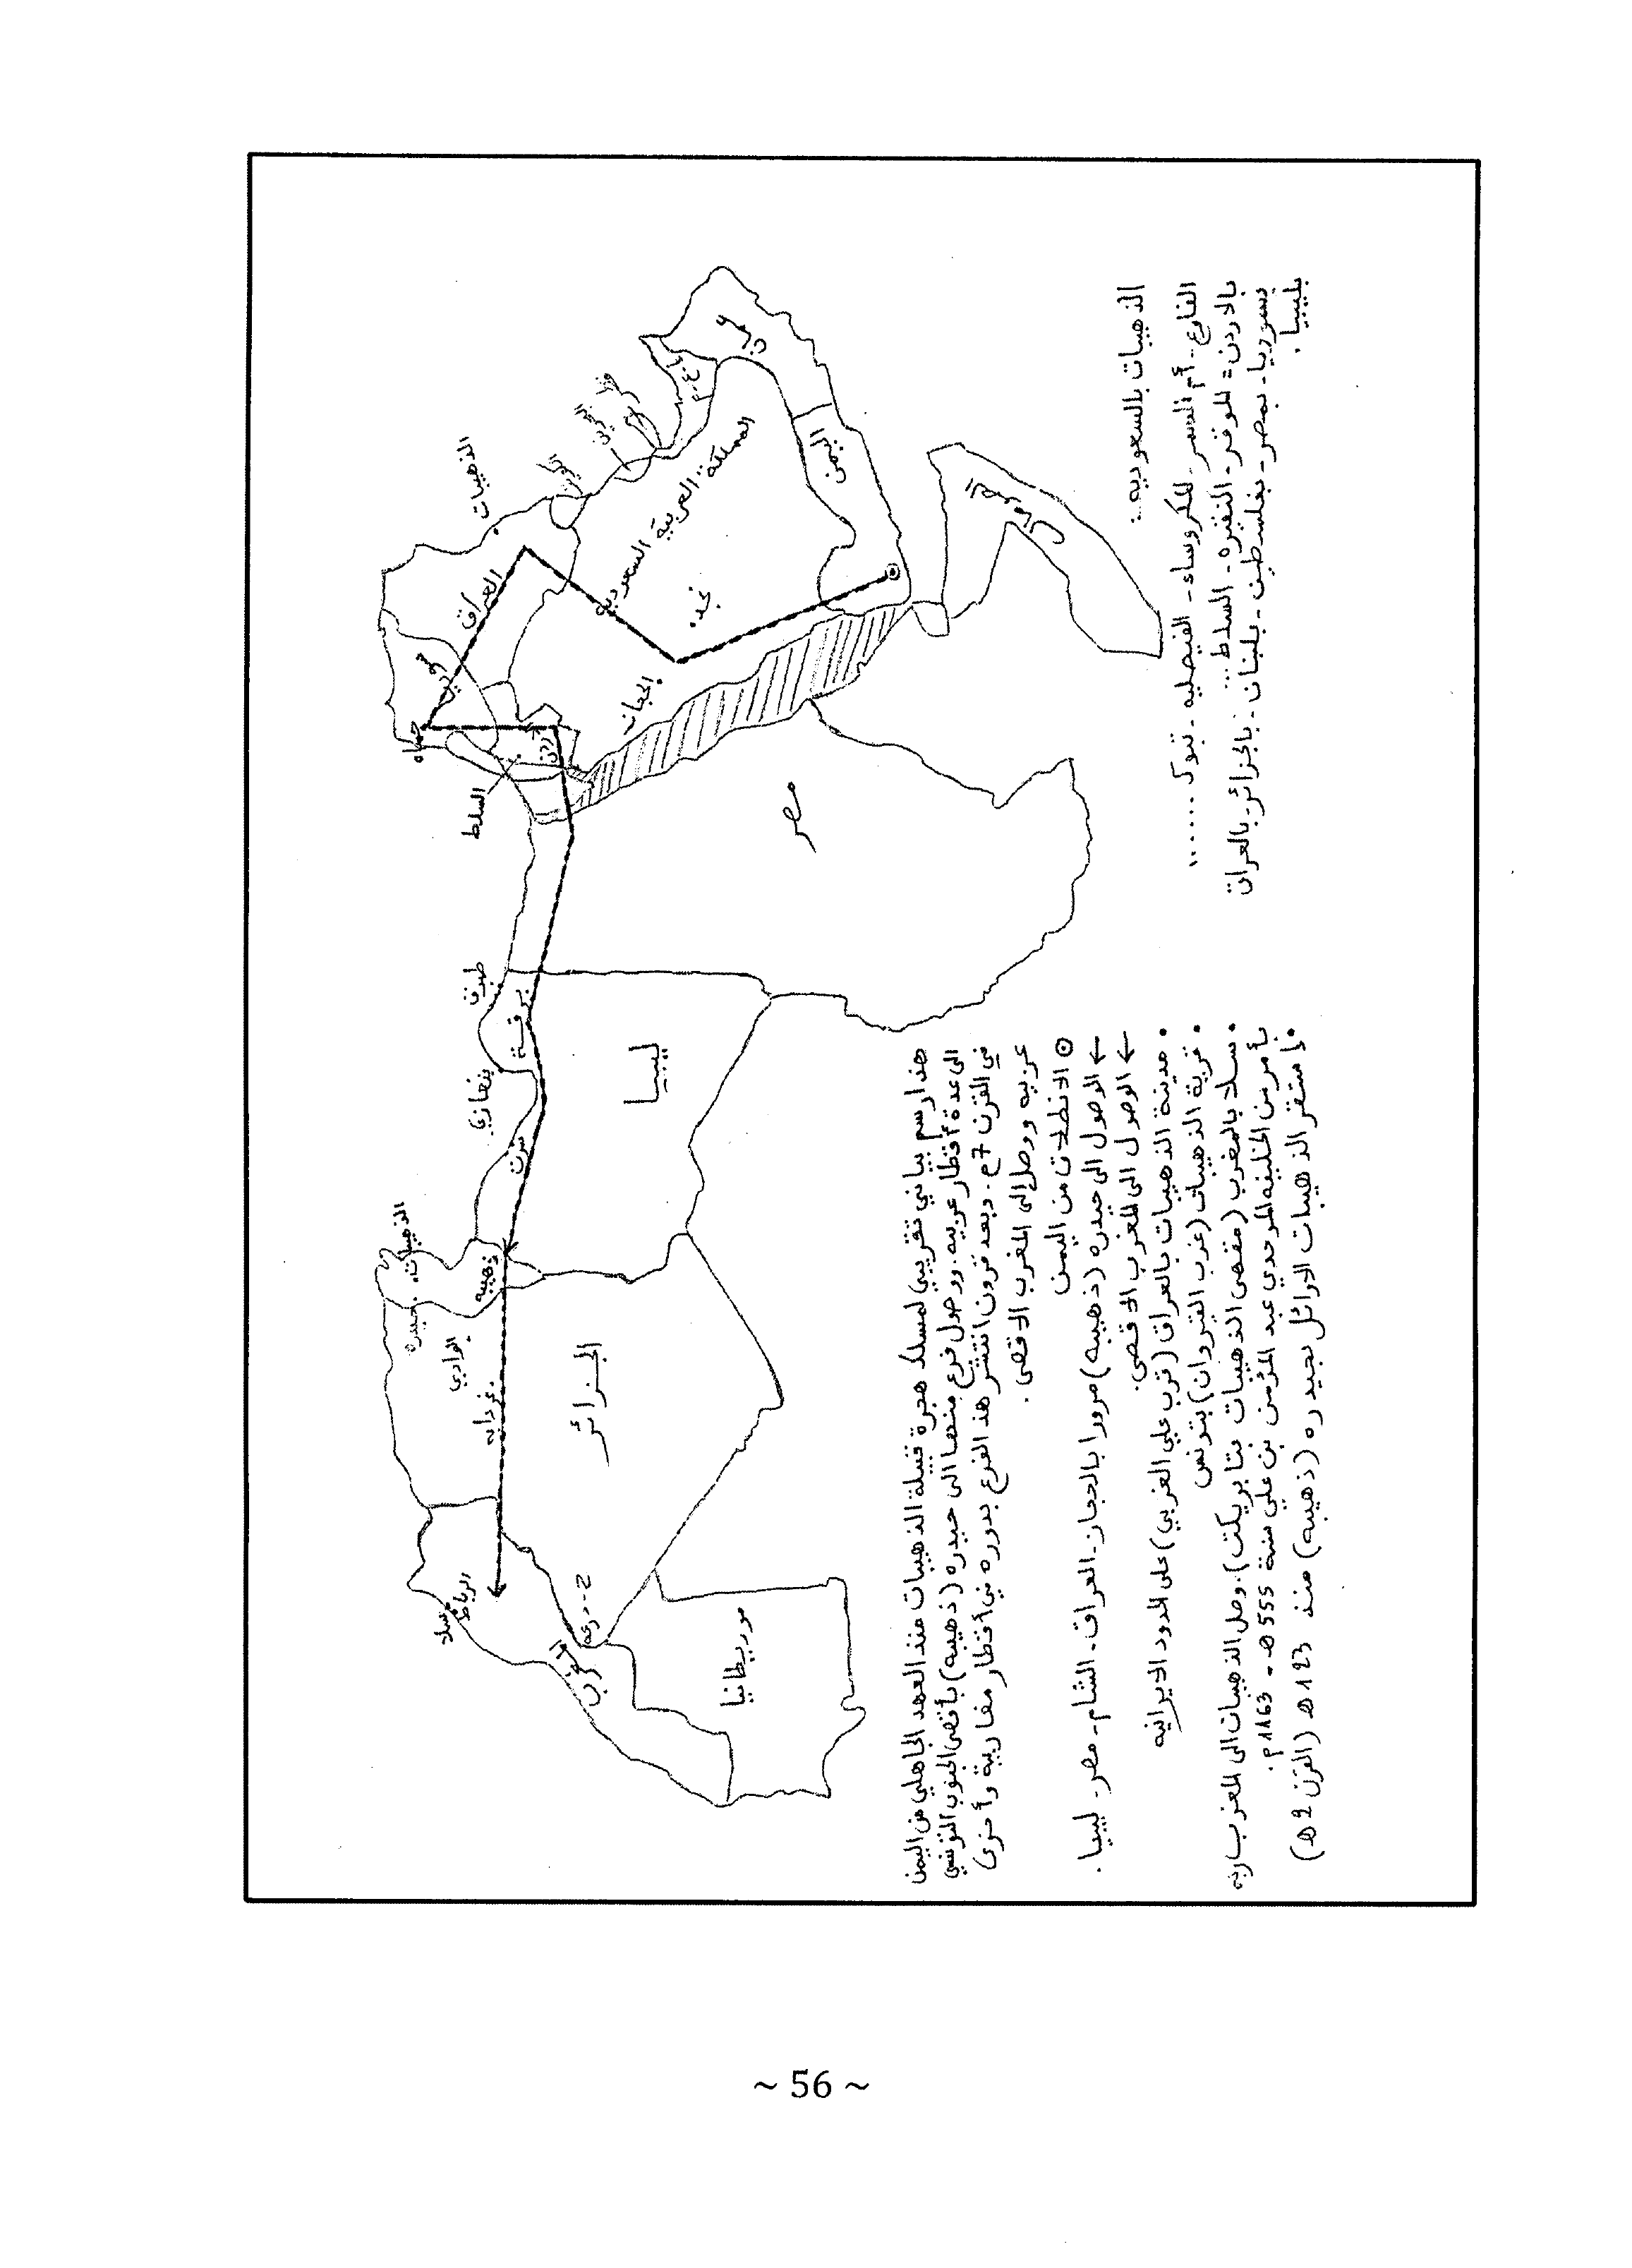 الذهيبات
العراق
سوريا
حماه
السلط
الأردن
الكويت
البحرين
قطر
ا.ع.م
عمان
المملكة العربية السعودية
نجد
الحجاز
اليمن
الصومال
مصر
طبرق
برقة
بنغازي
سرت
ليبيا
الذهيبات
حيدره
ذهيبه
الوادي
غردايه
الجزائر
الرباط
سلا
المغرب
موريطانيا
هذا رسم بياني تقريبي لمسلك هجرة قبيلة الذهيبات منذ العهد الجاهلي من اليمن
الى عدة أقطار عربيه. ووصول فرع منها الى حيدره (ذهيبه) بأقصى الجنوب التونسي
في القرن 7م. وبعد قرون انتشر هذ الفرع بدوره في أقطار مغاربية وأخرى
عربيه ووصل الى المغرب الاقصى.
⊙ الانطلاق من اليمن
← الوصول الى حيدره (ذهيبه) مرورا بالحجاز - العراق - الشام - مصر - ليبيا.
← الوصول الى المغرب الاقصى.
• مدينة الذهيبات بالعراق (قرب علي الغربي) على الحدود الايرانيه
• قرية الذهيبات (غرب القيروان) بتونس
• سلا بالمغرب (مقصى الذهيبات بتابريكت). وصل الذهيبات الى المغرب
بأمر من الخليفه الموحدي عبد المؤمن بن علي سنة 555 ه - 1163 م.
• إستقر الذهيبات الاوائل بحيدره (ذهيبه) منذ 123 ه (القرن 2 ه)
الذهيبات بالسعوديه:
الفارع - أم السمر - الكروساء - الفيصليه - تبوك ......
بالاردن = الموقر - النقيره - السلط ...
بسوريا - بمصر - بفلسطين - بلبنان - بالجزائر - بالعراق
بليبيا.
~ 56 ~